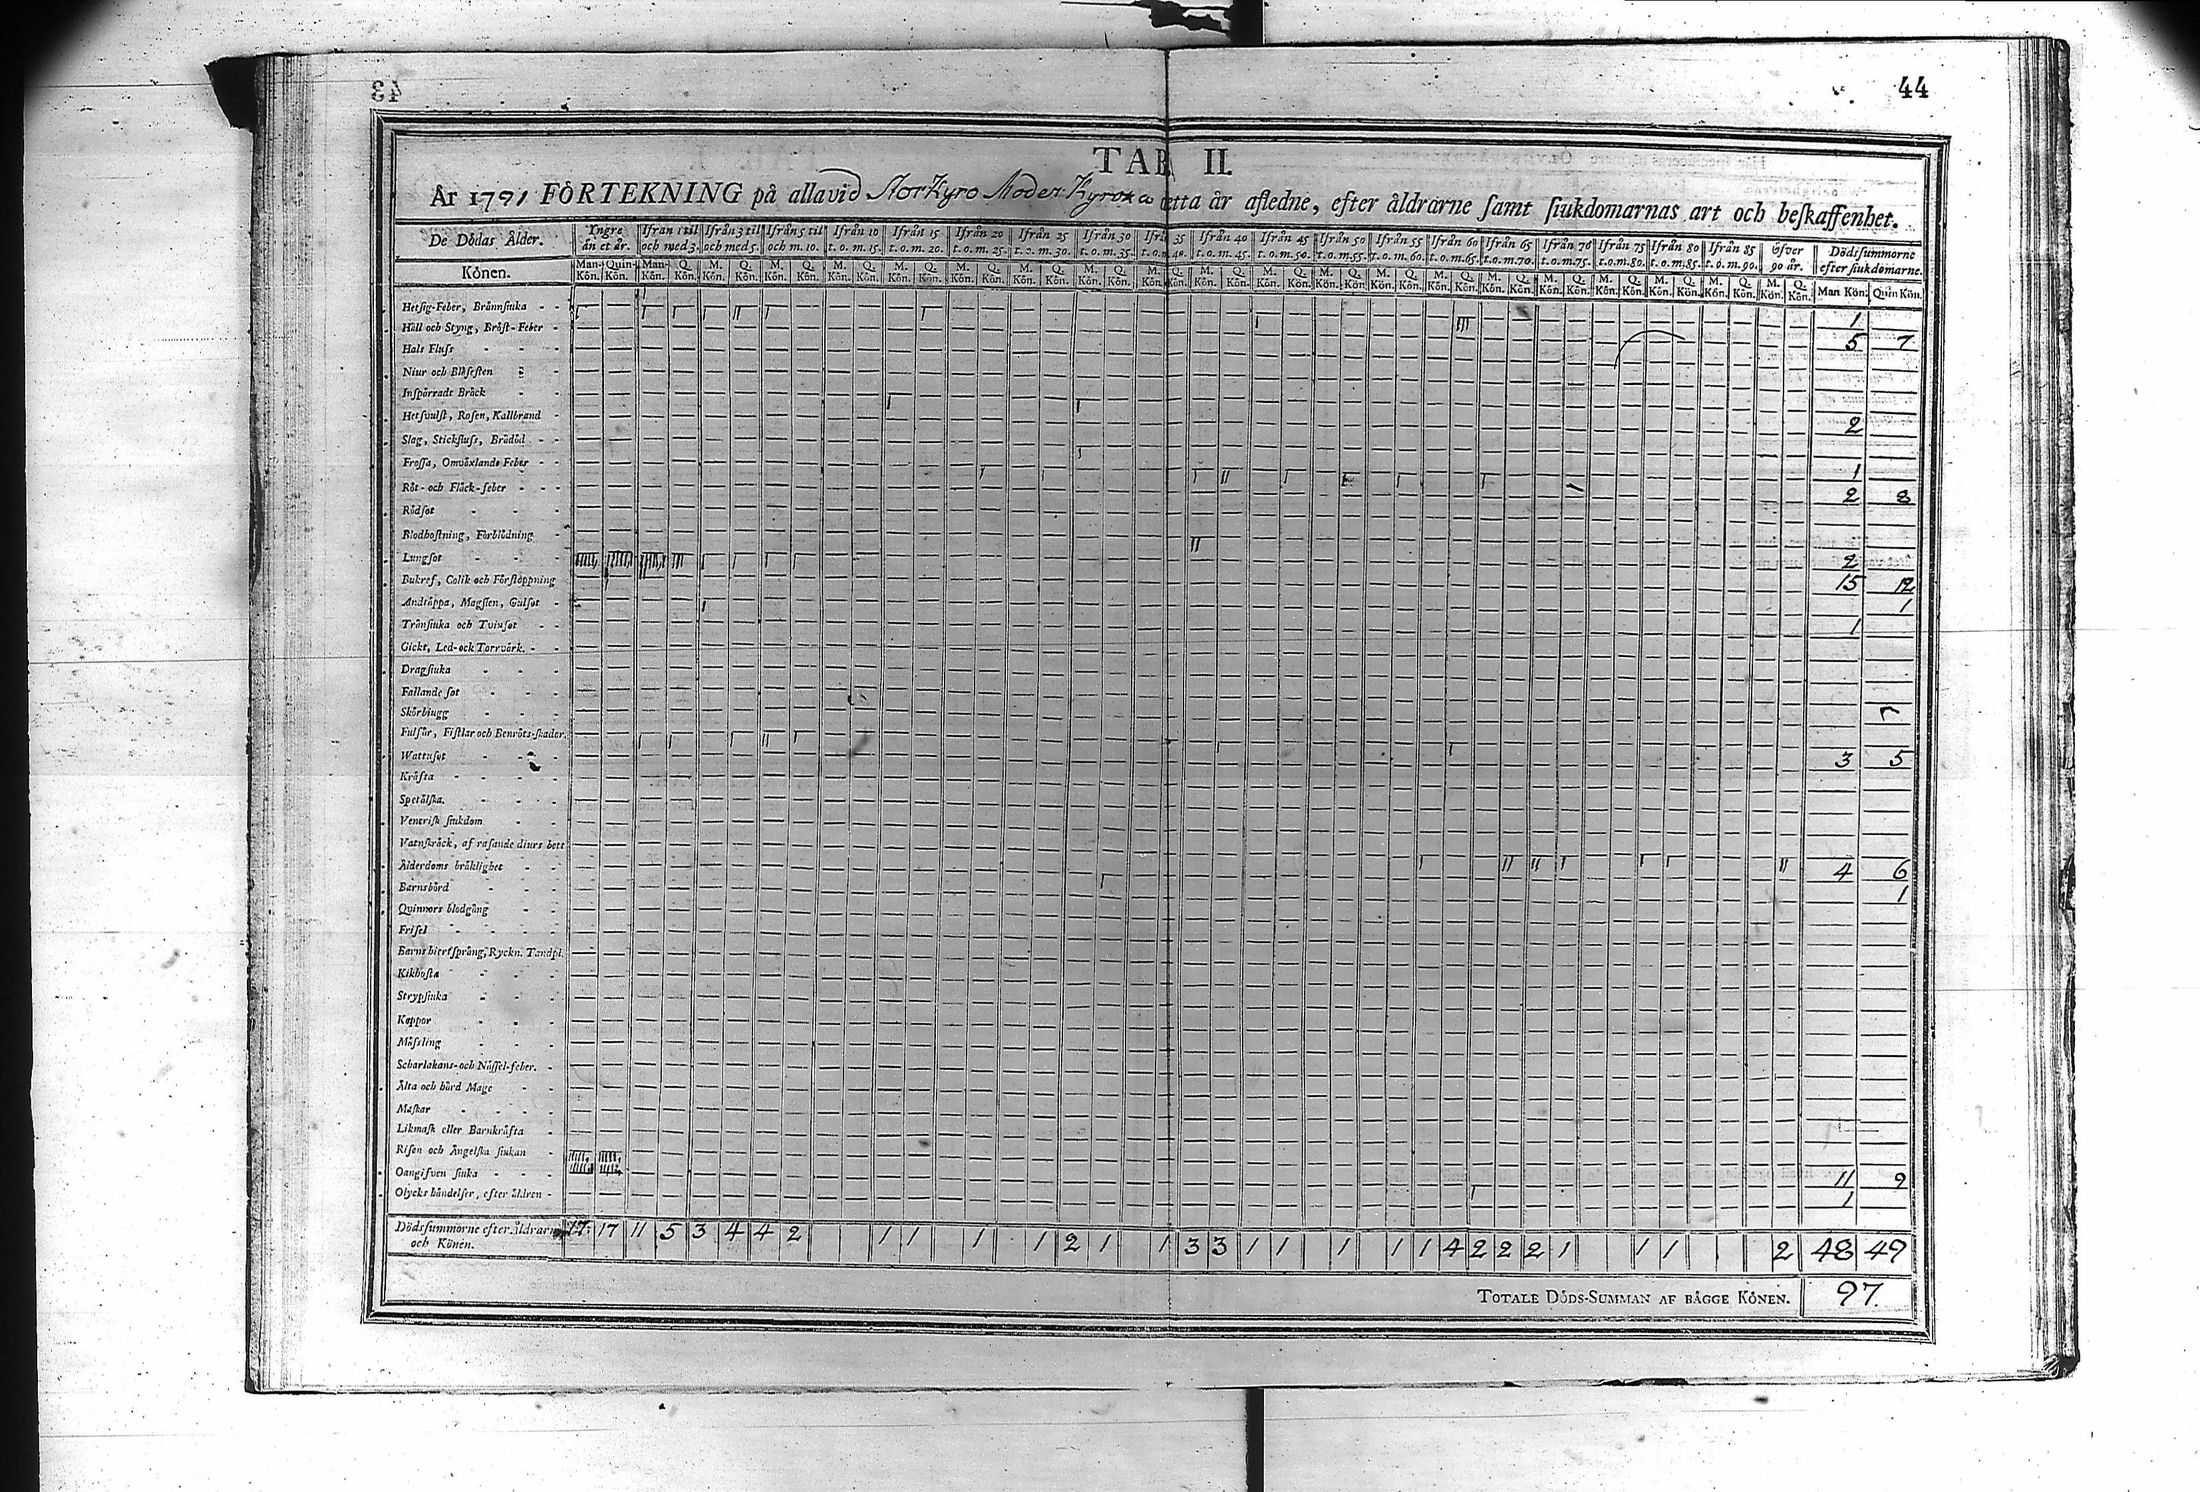 43
44
TAB II.
År 1791 FÖRTEKNING på alla vid Storkyro Moder Kyrcka detta år afledne, efter åldrarne samt siukdomarnas art och beskaffenhet.
De Dödas Ålder. Yngre än et år. Ifrån 1 til och med 3. Ifrån 3 til och med 5. Ifrån 5 til och m. 10. Ifrån 10 t. o. m. 15. Ifrån 15 t. o. m. 20. Ifrån 20 t. o. m. 25. Ifrån 25 t. o. m. 30. Ifrån 30 t. o. m. 35. Ifrån 35 t. o. m. 40. Ifrån 40 t. o. m. 45. Ifrån 45 t. o. m. 50. Ifrån 50 t. o. m. 55. Ifrån 55 t. o. m. 60. Ifrån 60 t. o. m. 65. Ifrån 65 t. o. m. 70. Ifrån 70 t. o. m. 75. Ifrån 75 t. o. m. 80. Ifrån 80 t. o. m. 85. Ifrån 85 t. o. m. 90. Öfver 90 år. Dödssummorne efter siukdomarne.
Könen. Man-Kön. Quin-Kön. Man-Kön. Q. Kön. M. Kön. Q. Kön. M. Kön. Q. Kön. M. Kön. Q. Kön. M. Kön. Q. Kön. M. Kön. Q. Kön. M. Kön. Q. Kön. M. Kön. Q. Kön. M. Kön. Q. Kön. M. Kön. Q. Kön. M. Kön. Q. Kön. M. Kön. Q. Kön. M. Kön. Q. Kön. M. Kön. Q. Kön. M. Kön. Q. Kön. M. Kön. Q. Kön. M. Kön. Q. Kön. M. Kön. Q. Kön. M. Kön. Q. Kön. M. Kön. Q. Kön. Man Kön. Quin Kön.
Hetsig-Feber, Brännsiuka 1
Håll och Styng, Bröst-Feber 5 7
Hals Fluss
Niur och Blåsesten
Inspärradt Bråck
Hetsvulst, Rosen, Kallbrand 2
Slag, Stickfluss, Brådöd
Frossa, Omväxlande Feber 1
Röt- och Fläck-feber 2 8
Rödsot
Blodhostning, Förblödning
Lungsot 2
Bukref, Colik och Förstoppning 15 12
Andtäppa, Magsien, Gulsot 1
Trånsiuka och Tvinsot 1
Gickt, Led-ock Torrvärk.
Dragsiuka
Fallande sot
Skörbiugg
Fulsår, Fistlar och Benröts-skador.
Wattusot 3 5
Kräfta
Spetälska.
Venerisk siukdom
Vatnskräck, af rasande diurs bett
Ålderdoms bräklighet 4 6
Barnsbörd 1
Qvinnors blodgång
Frisel
Barns hiertsprång, Ryckn. Tandpl.
Kikhosta
Strypsiuka
Koppor
Mässling
Scharlakans-och Nässel-feber.
Älta och hård Mage
Maskar
Likmask eller Barnkräfta
Risen och Ängelska siukan
Oangifven siuka 11 9
Olycks händelser, efter åldren 1
Dödssummorne efter Åldrarne och Könen. 17 17 11 5 3 4 4 2 1 1 1 1 2 1 1 3 3 1 1 1 1 1 4 2 2 2 1 1 1 2 48 49
TOTALE DÖDS-SUMMAN AF BÄGGE KÖNEN. 97.